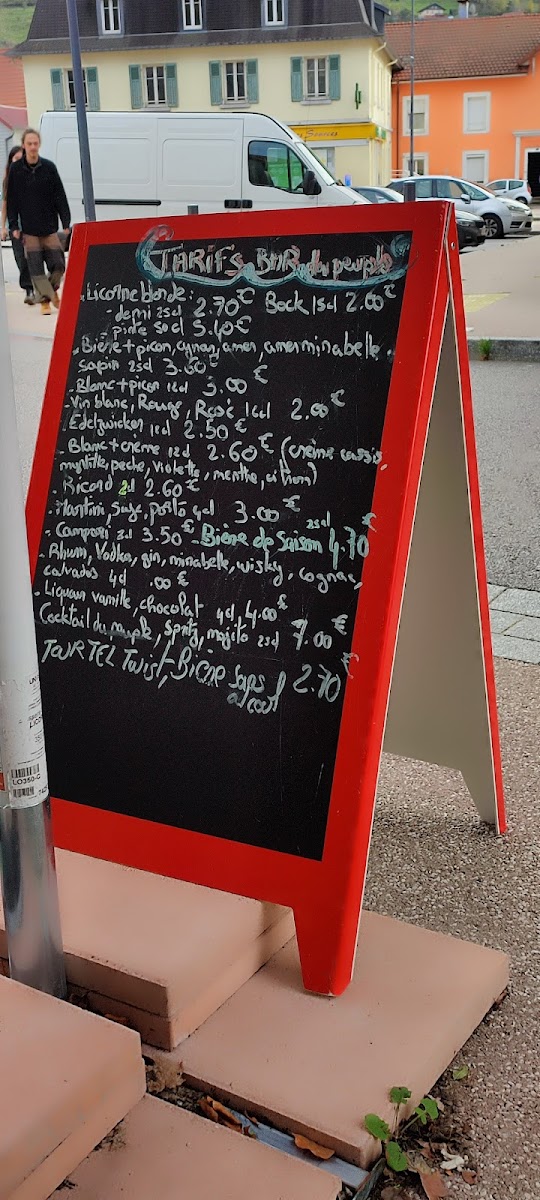 TARIFS BAR du peuple
- Licorne blonde: Bock 15cl 2.00€
- demi 25cl 2.70€
pinte 50cl 5.40€
- Bière + picon, cynar, amer, amer mirabelle,
sapin 25cl 3.60€
- Blanc + picon 12cl 3.00€
- Vin blanc, Rouge, Rosé 12cl 2.00€
Edelzwicker 12cl 2.50€
- Blanc + crème 12cl 2.60€ (crème cassis,
myrtille, peche, violette, menthe, citron)
- Ricard 2cl 2.60€
- Martini, Suze, porto 4cl 3.00€
- Campari 3cl 3.50€ - Bière de Saison 25cl 4.70€
- Rhum, Vodka, gin, mirabelle, wisky, cognac,
calvados 4cl .00€
- Liqueur vanille, chocolat 4cl 4.00€
Cocktail du peuple, spritz, mojito 25cl 7.00€
TOURTEL Twist, BIÈRE Sans alcool 2.70€
LO350-C